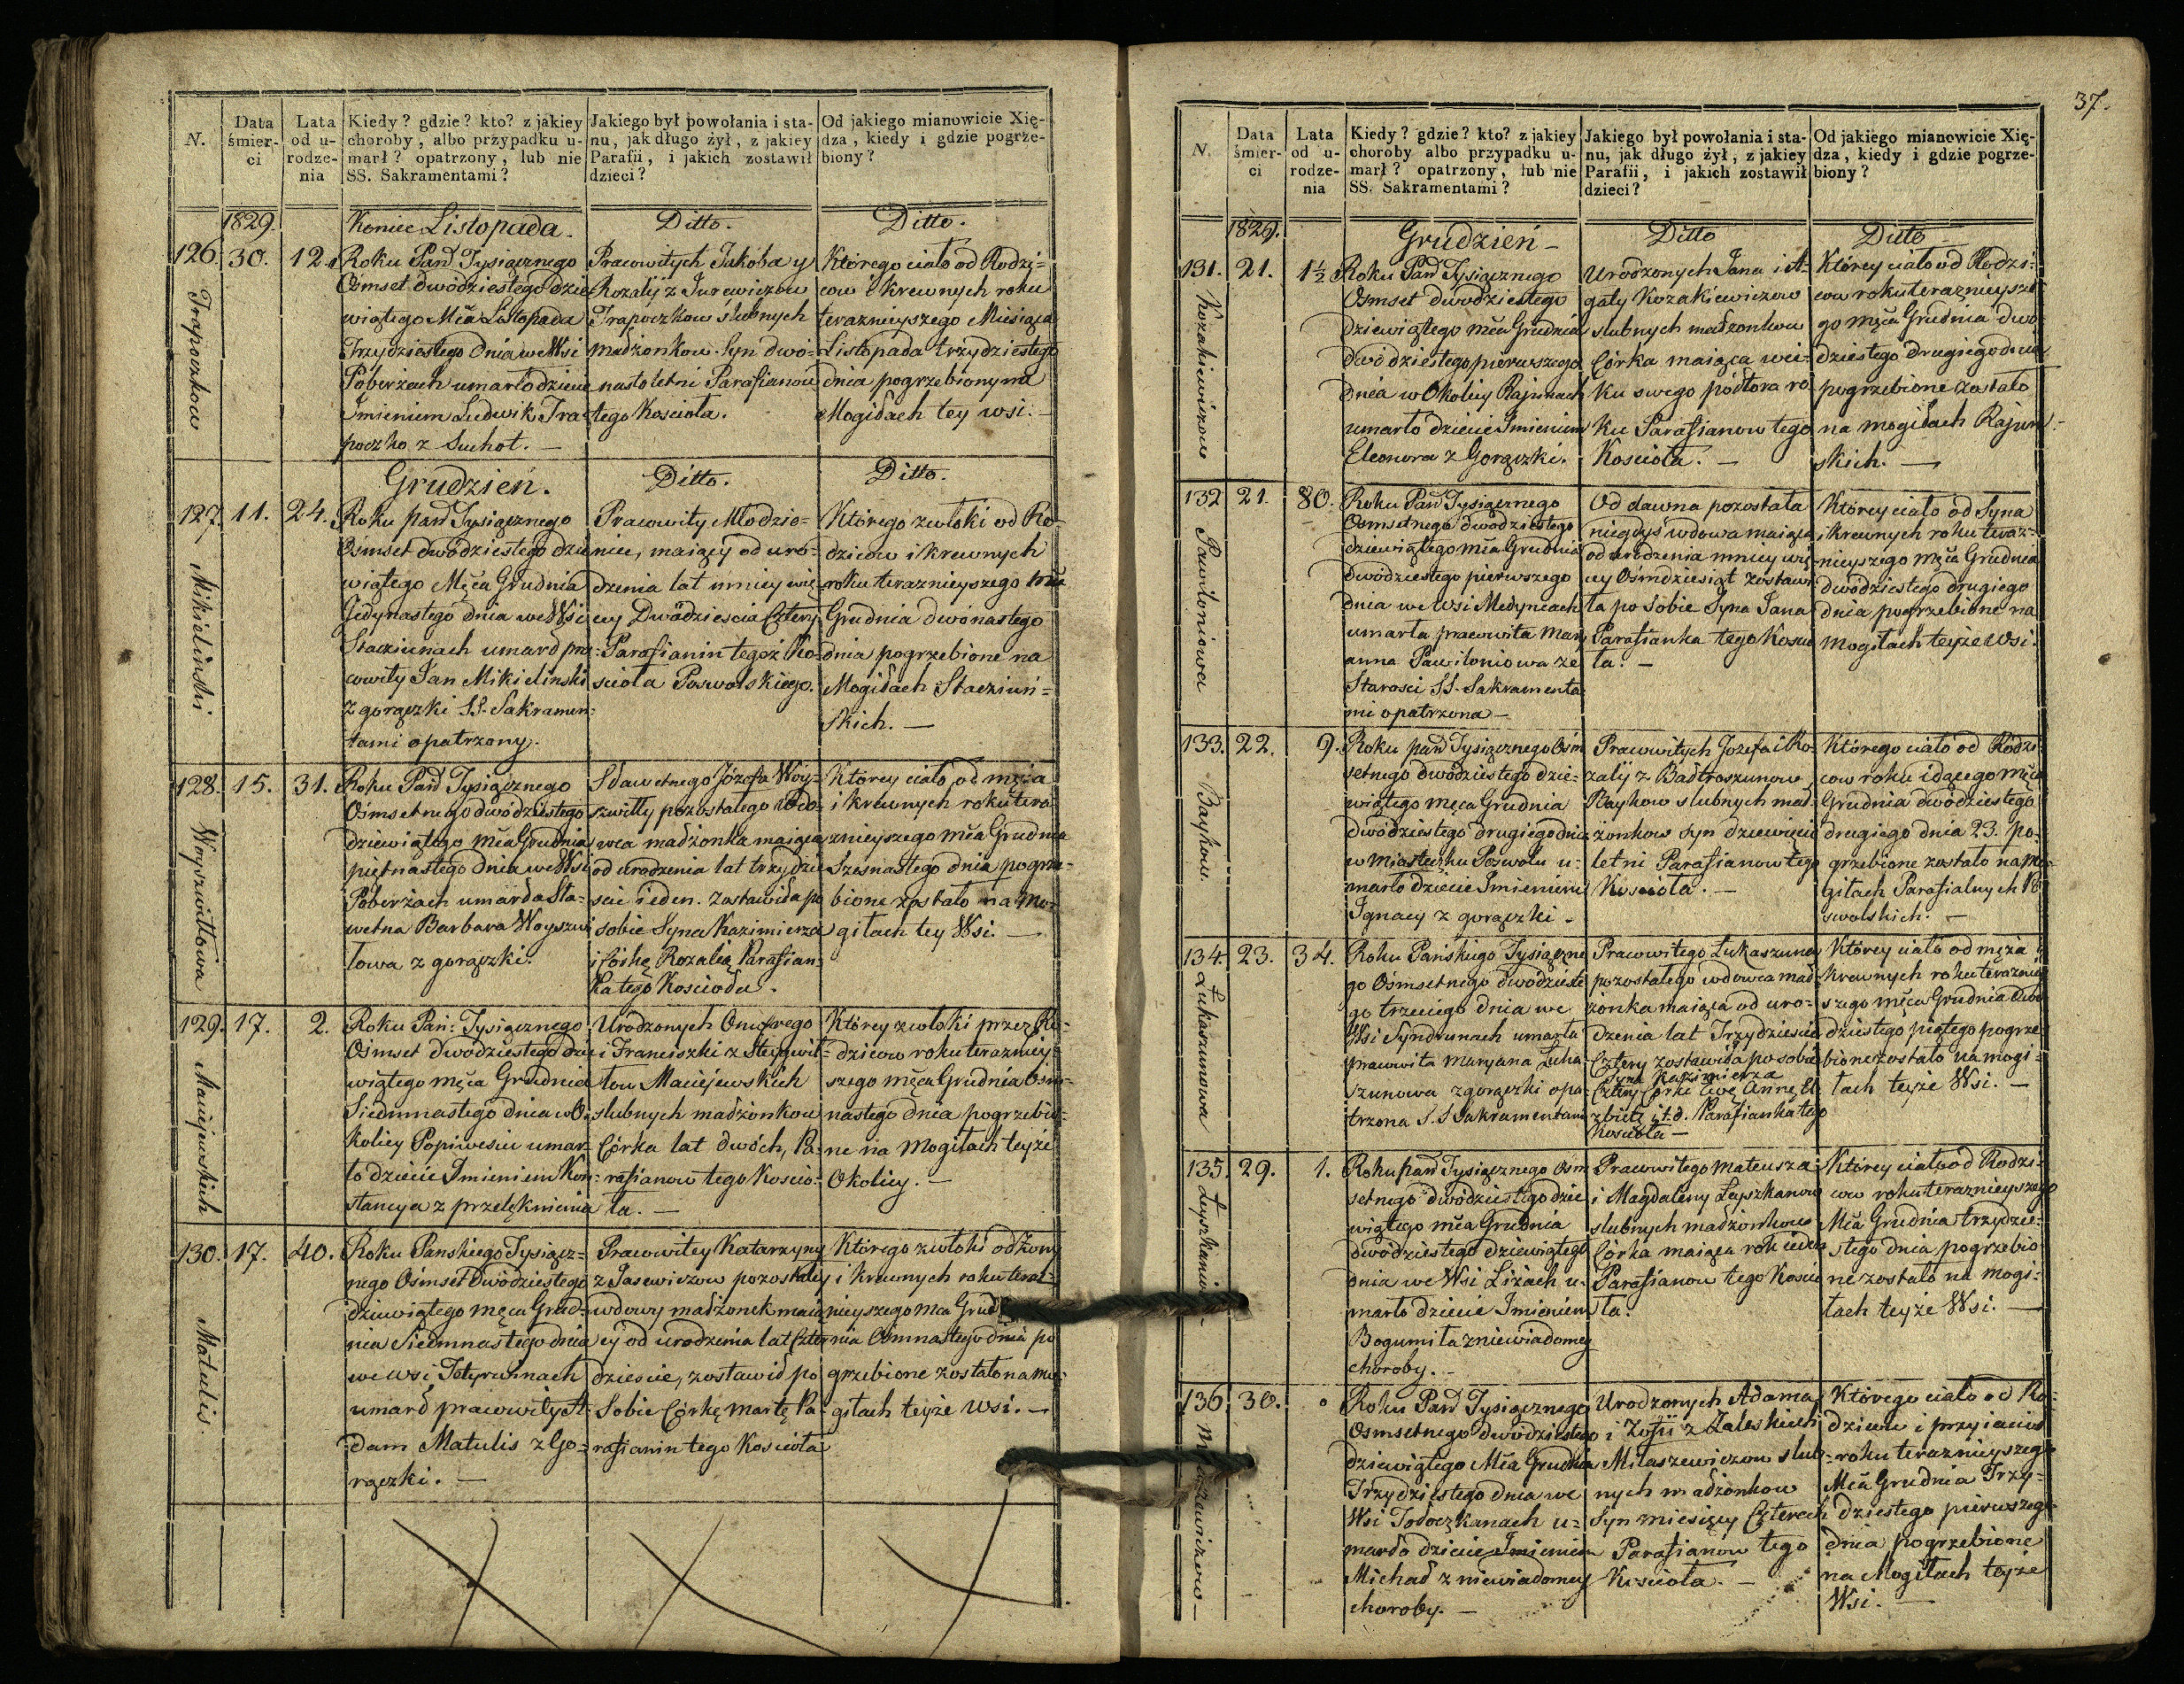 N.
Data śmier- ci
Lata od u- rodze- nia
Kiedy? gdzie? kto? z jakiey
choroby, albo przypadku u-
marł? opatrzony, lub nie
SS. Sakramentami?
Jakiego był powołania i sta-
nu, jak długo żył, z jakiey
Parafii, i jakich zostawił
dzieci?
Od jakiego mianowicie Xię-
dza, kiedy i gdzie pogrze-
biony?
1829.
Koniec Listopada.
Ditto.
Ditto.
126. 30. 12.
Trapoczkow
Roku Pań Tysiącznego
Ośmset dwódziestego dzie
wiątego Mca Listopada
Trzydziestego dnia we Wsi
Poberżach umarło dziecie
Imieniem Ludwik Tra
poczko z Suchot. —
Pracowitych Jakóba y
Rozalij z Jurewiczow
Trapoczkow slubnych
madżonkow. Syn dwó-
nasto letni Parafianow
tego Kosciola.
Którego ciało od Rodzi-
cow i krewnych roku
teraznieyszego Miesiąca
Listopada trzydziestego
dnia pogrzebiony na
Mogiłach tey wsi. —
Grudzień.
Ditto.
Ditto.
127. 11. 24.
Mikielinski
Roku pań Tysiącznego
Ośmset dwódziestego dzie
wiątego Męca Grudnia
Jedynastego dnia we Wsi
Stacziunach umarł pra-
cowity Jan Mikielinski
z gorączki S.S. Sakramen-
tami opatrzony.
Pracowity Młodzie-
niec, maiący od uro-
dzenia lat mniey wię-
cey Dwódziescia Cztery
Parafianin tegoż Ko-
sciola Poswolskiego.
Którego zwłoki od Ro-
dzicow i krewnych
roku teraznieyszego mca
Grudnia dwónastego
dnia pogrzebione na
Mogiłach Stacziuń-
skich. —
128. 15. 31.
Woyszwiłłowa
Roku Pań Tysiącznego
Ośmsetnego dwódziestego
dziewiątego mca Grudnia
piętnastego dnia we Wsi
Poberżach umarła Sła-
wetna Barbara Woyszwi
łowa z gorączki.
Sławetnego Józefa Woy-
szwiłły pozostałego wdo-
wca madżonka maiąca
od urodzenia lat trzydzie
scie ieden. Zostawiła po
sobie Syna Kazimierza
i Córkę Rozalią Parafian-
ka tego Kosciołu.
Którey ciało od męża
i krewnych roku tera
znieyszego mca Grudnia
Szesnastego dnia pogrze-
bione zostało na Mo-
giłach tey Wsi. —
129. 17. 2.
Maciejewskich
Roku Pań: Tysiącznego
Ośmset dwódziestego dzie
wiątego męca Grudnia
Siedmnastego dnia w O-
kolicy Popiwesiu umar-
ło dziecie Imieniem Kon-
stancya z przelęknienia
Urodzonych Onufrego
i Franciszki z Steygwił-
łow Maciejewskich
slubnych madżonkow
Córka lat dwóch, Pa-
rafianow tego Koscio-
ła. —
Którey zwłoki przez Ro-
dzicow roku terazniey-
szego męca Grudnia Ośm-
nastego dnia pogrzebio-
ne na Mogiłach teyże
Okolicy. —
130. 17. 40.
Matulis.
Roku Panskiego Tysiącz-
nego Ośmset Dwódziestego
dziewiątego męca Grud-
nia Siedmnastego dnia
we wsi Totyrwinach
umarł pracowity A-
dam Matulis z Go-
rączki. —
Pracowitey Katarzyny
z Jasewiczow pozostałey
wdowy madżonek maią
cy od urodzenia lat Czter
dziescie, zostawił po
Sobie Córkę Martę Pa-
rafianin tego Kosciola
Którego zwłoki od żony
i krewnych roku teraz-
nieyszego mca Grud
nia Osmnastego dnia po
grzebione zostało na Mo-
giłach teyże Wsi. —
37.
N.
Data śmier- ci
Lata od u- rodze- nia
Kiedy? gdzie? kto? z jakiey
choroby albo przypadku u-
marł? opatrzony, lub nie
SS. Sakramentami?
Jakiego był powołania i sta-
nu, jak długo żył, z jakiey
Parafii, i jakich zostawił
dzieci?
Od jakiego mianowicie Xię-
dza, kiedy i gdzie pogrze-
biony?
1829.
Grudzień —
Ditto
Ditto
131. 21. 1½
Kozakiewiczow
Roku Pań Tysiącznego
Osmset dwódziestego
dziewiątego mca Grudnia
dwódziestego pierwszego
dnia w Okolicy Rajunach
umarło dziecie Imieniem
Eleonora z Gorączki.
Urodzonych Jana i A-
gaty Kozakiewiczow
slubnych madżonkow
Córka maiąca wie-
ku swego półtora ro
ku Parafianow tego
Kosciola. —
Którey ciało od Rodzi-
cow roku teraznieysze
go męca Grudnia dwó
dziestego drugiego dnia
pogrzebione zostało
na mogiłach Rajun-
skich. —
132 21. 80.
Pawiloniowa
Roku Pań Tysiącznego
Osmsetnego dwódziestego
dziewiątego mca Grudnia
dwódziestego pierwszego
dnia we wsi Medyniach
umarła pracowita Mary
anna Pawiloniowa ze
Starosci S.S. Sakramenta
mi opatrzona —
Od dawna pozostała
niegdyś wdowa maiąca
od urodzenia mniey wię
cey Ośmdziesiąt zostawi
ła po Sobie Syna Jana
Parafianka tego Koscio
ła. —
Którey ciało od Syna
i krewnych roku teraz-
nieyszego męca Grudnia
dwódziestego drugiego
dnia pogrzebione na
mogiłach teyże Wsi.
133. 22. 9.
Baykow.
Roku pań Tysiącznego Ośm
setnego dwódziestego dzie-
wiątego męca Grudnia
dwódziestego drugiego dnia
w Miasteczku Poswolu u-
marło dziecie Imieniem
Ignacy z gorączki.
Pracowitych Jozefa i Ro-
zalij z Bałtroszunow
Baykow slubnych mad-
żonkow Syn dziewięcio
letni Parafianow tego
Kosciola. —
Którego ciało od Rodzi
cow roku idącego męca
Grudnia dwódziestego
drugiego dnia 23. po-
grzebione zostało na Mo-
giłach Parafialnych Po
swolskich. —
134. 23. 34.
Łukaszunowa
Roku Pańskiego Tysiączne
go Ośmsetnego dwódzieste
go trzeciego dnia we
Wsi Syndrunach umarła
pracowita Maryana Łuka
szunowa z gorączki opa-
trzona S.S. Sakramentami
Pracowitego Łukaszuna
pozostałego wdowca mad-
żonka maiąca od uro-
dzenia lat Trzydziescie
Cztery zostawiła po sobie
Syna Kazimierza
Cztery Córki Ewę Annę El
zbietę i t.d. Parafianka tego
Kosciola —
Którey ciało od męża i
krewnych roku teraznie
szego męca Grudnia dwó
dziestego piątego pogrze-
bione zostało na mogi-
łach teyże Wsi. —
135. 29. 1.
Roku pań Tysiącznego Ośm
setnego dwódziestego dzie
wiątego mca Grudnia
dwódziestego dziewiątego
dnia we Wsi Liżach u-
marło dziecie Imieniem
Bogumiła z niewiadomey
choroby. —
Pracowitego Mateusza
i Magdaleny Łayszkanow
slubnych madżonkow
Córka maiąca rok ieden
Parafianow tego Koscio
ła.
Którey ciało od Rodzi-
cow roku teraznieyszego
Mca Grudnia trzydzie-
stego dnia pogrzebio
ne zostało na mogi-
łach teyże Wsi. —
136. 30.
Roku Pań Tysiącznego
Osmsetnego dwódziestego
dziewiątego Mca Grudnia
Trzydziestego dnia we
Wsi Todoczkanach u-
marło dziecie Imieniem
Michał z niewiadomey
choroby. —
Urodzonych Adama
i Zofii z Zaleskich
Milaszewiczow slub-
nych madżonkow
Syn miesięcy Czterech
Parafianow tego
Kosciola. —
Którego ciało od Ro-
dzicow i przyiaciół
roku teraznieyszego
Mca Grudnia Trzy-
dziestego pierwszego
dnia pogrzebione
na Mogiłach teyże
Wsi. —